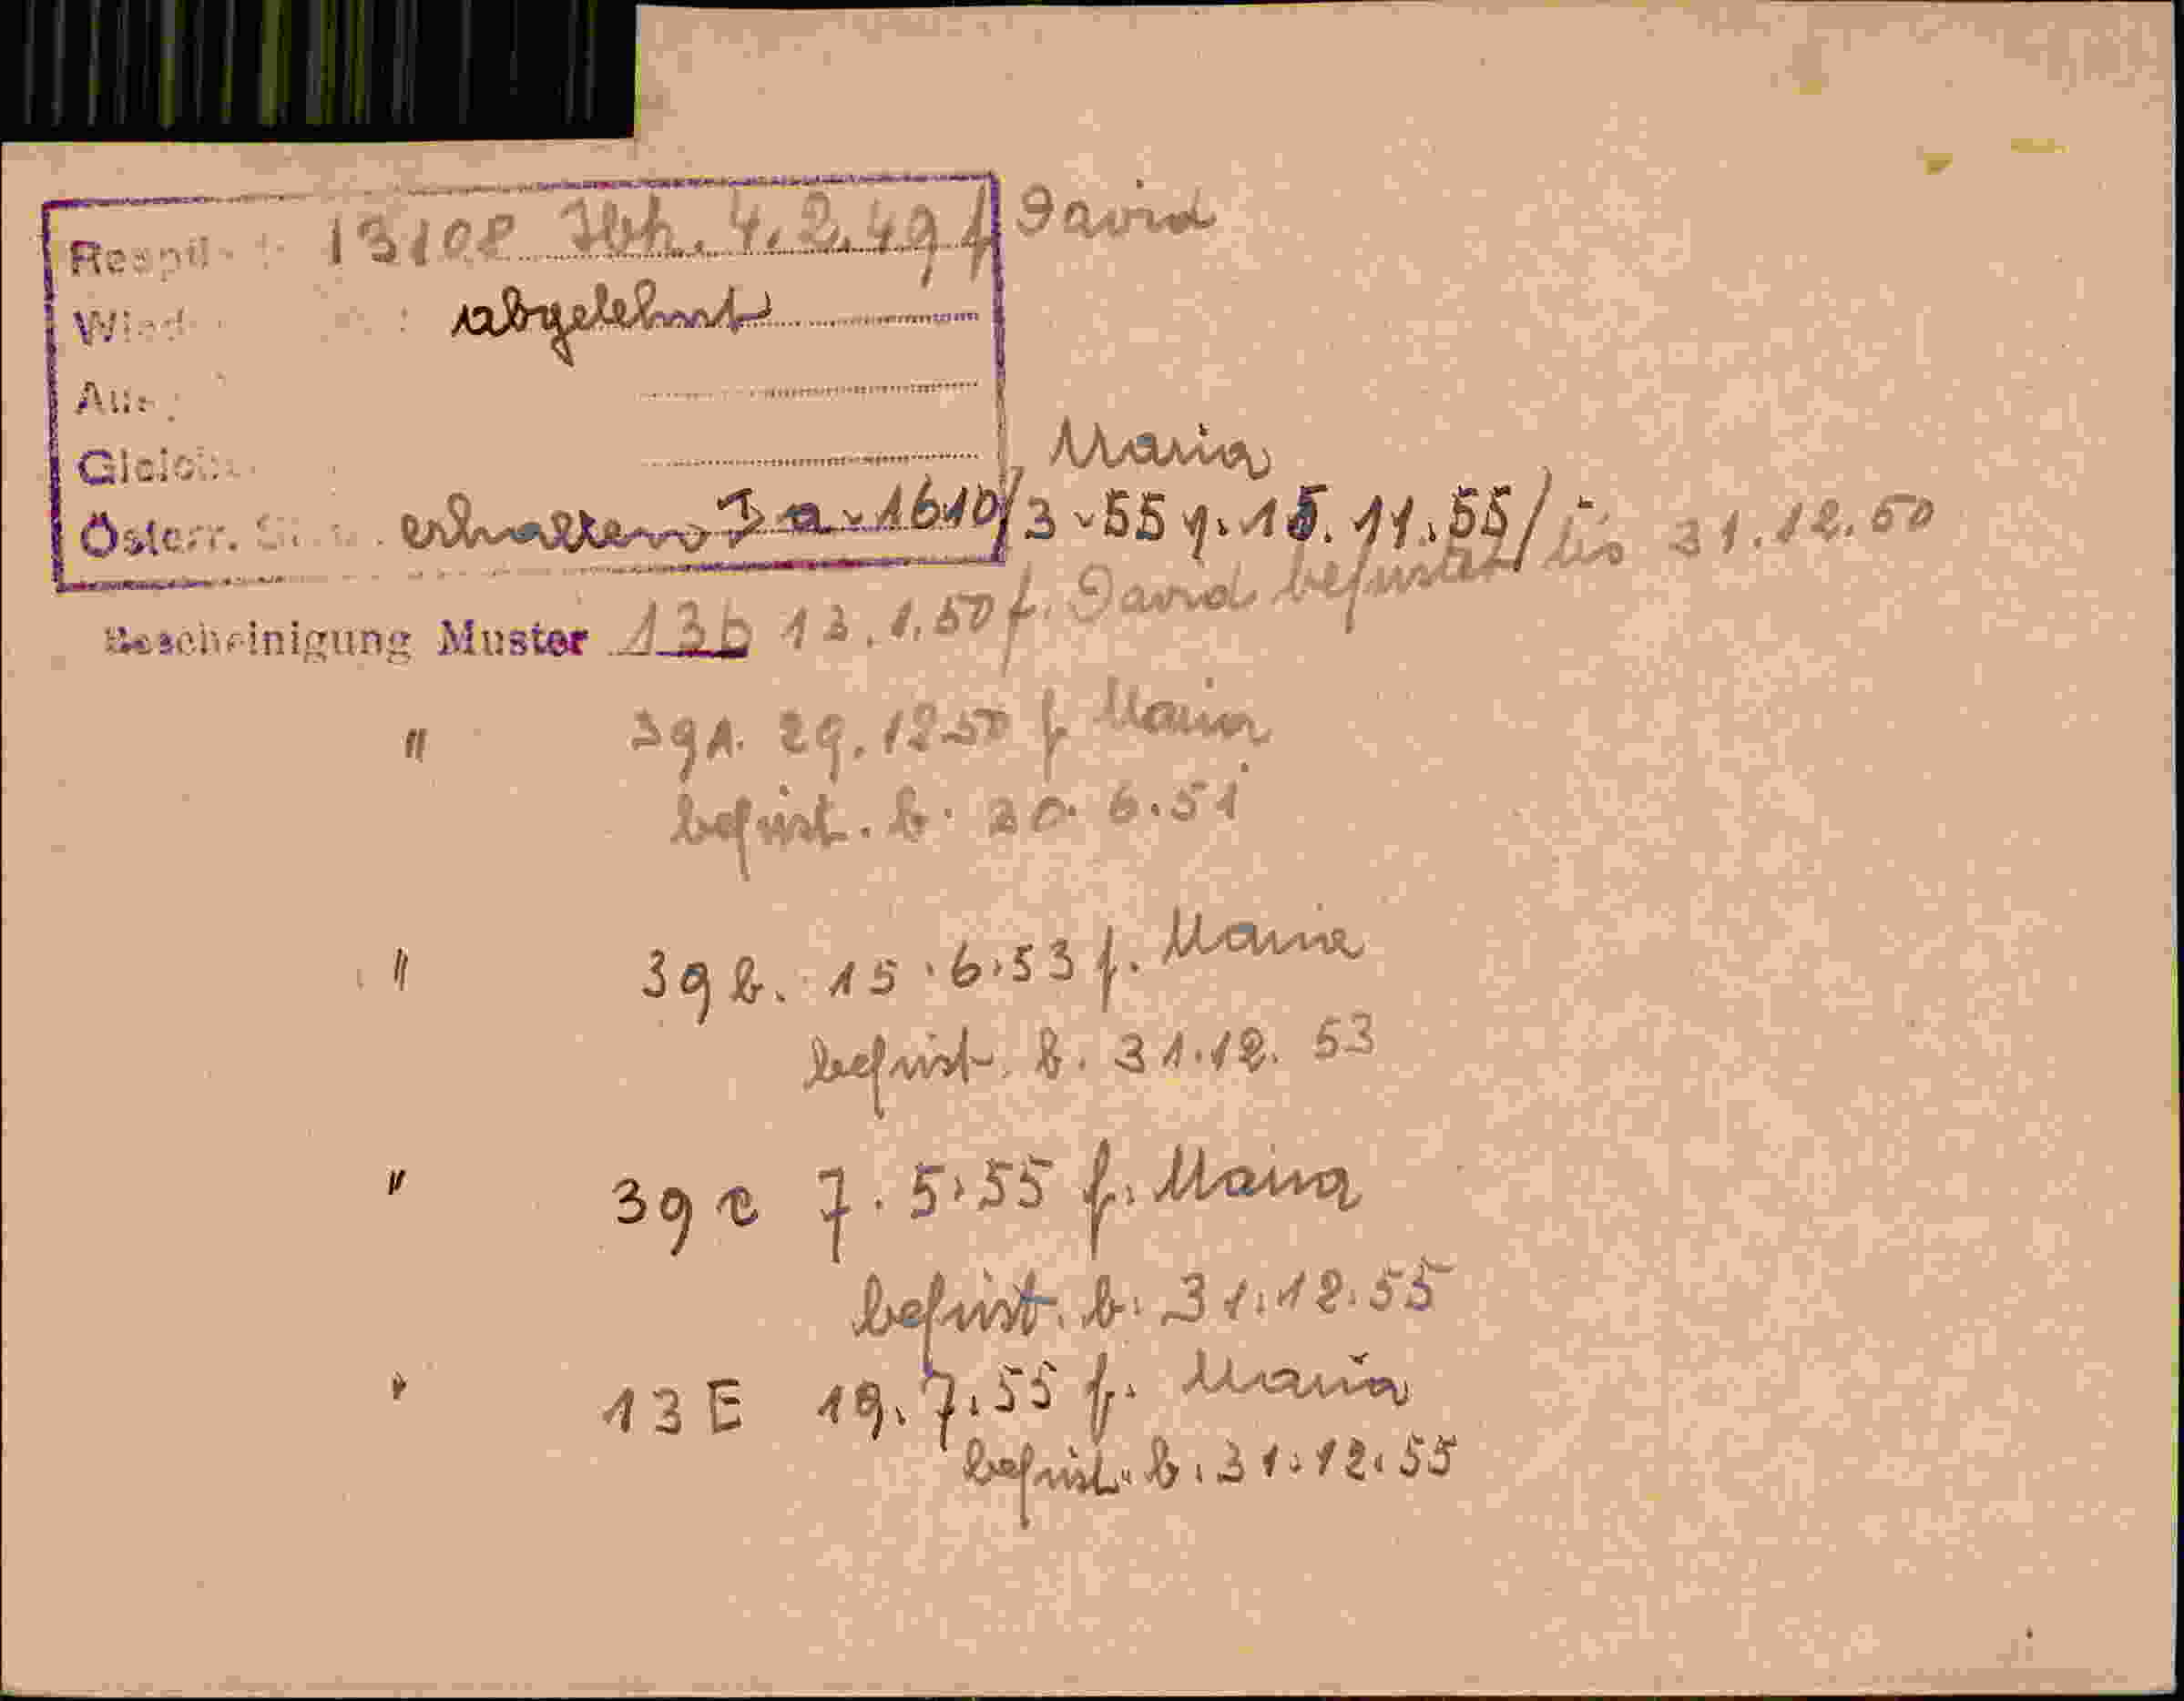 13108 Ibk. 4.2.49 f. David
abgelehnt
Maria
Österr. erhalten I a-1610/3-55 v. 15.11.55/
Bescheinigung Muster 13b 13.1.50 f. David befristet bis 31.12.50
" 39A. 29.12.50 f. Maria
befrist. b. 30.6.51
" 39b. 15.6.53 f. Maria
befrist. b. 31.12.53
" 39c 7.5.55 f. Maria
befrist. b. 31.12.55
" 13E 19.7.55 f. Maria
befrist. b. 31.12.55